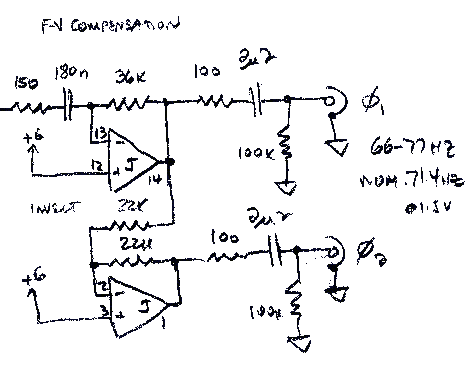 F-V COMPENSATION
150 180n 36K 100 2µ2
+6 13 - 12 + J 14
100K
Φ1
66-77 HZ
NOM. 71.4 HZ
@1.5V
INVERT 22K
22K 100 2µ2
+6 - 3 + J 1
100K
Φ2